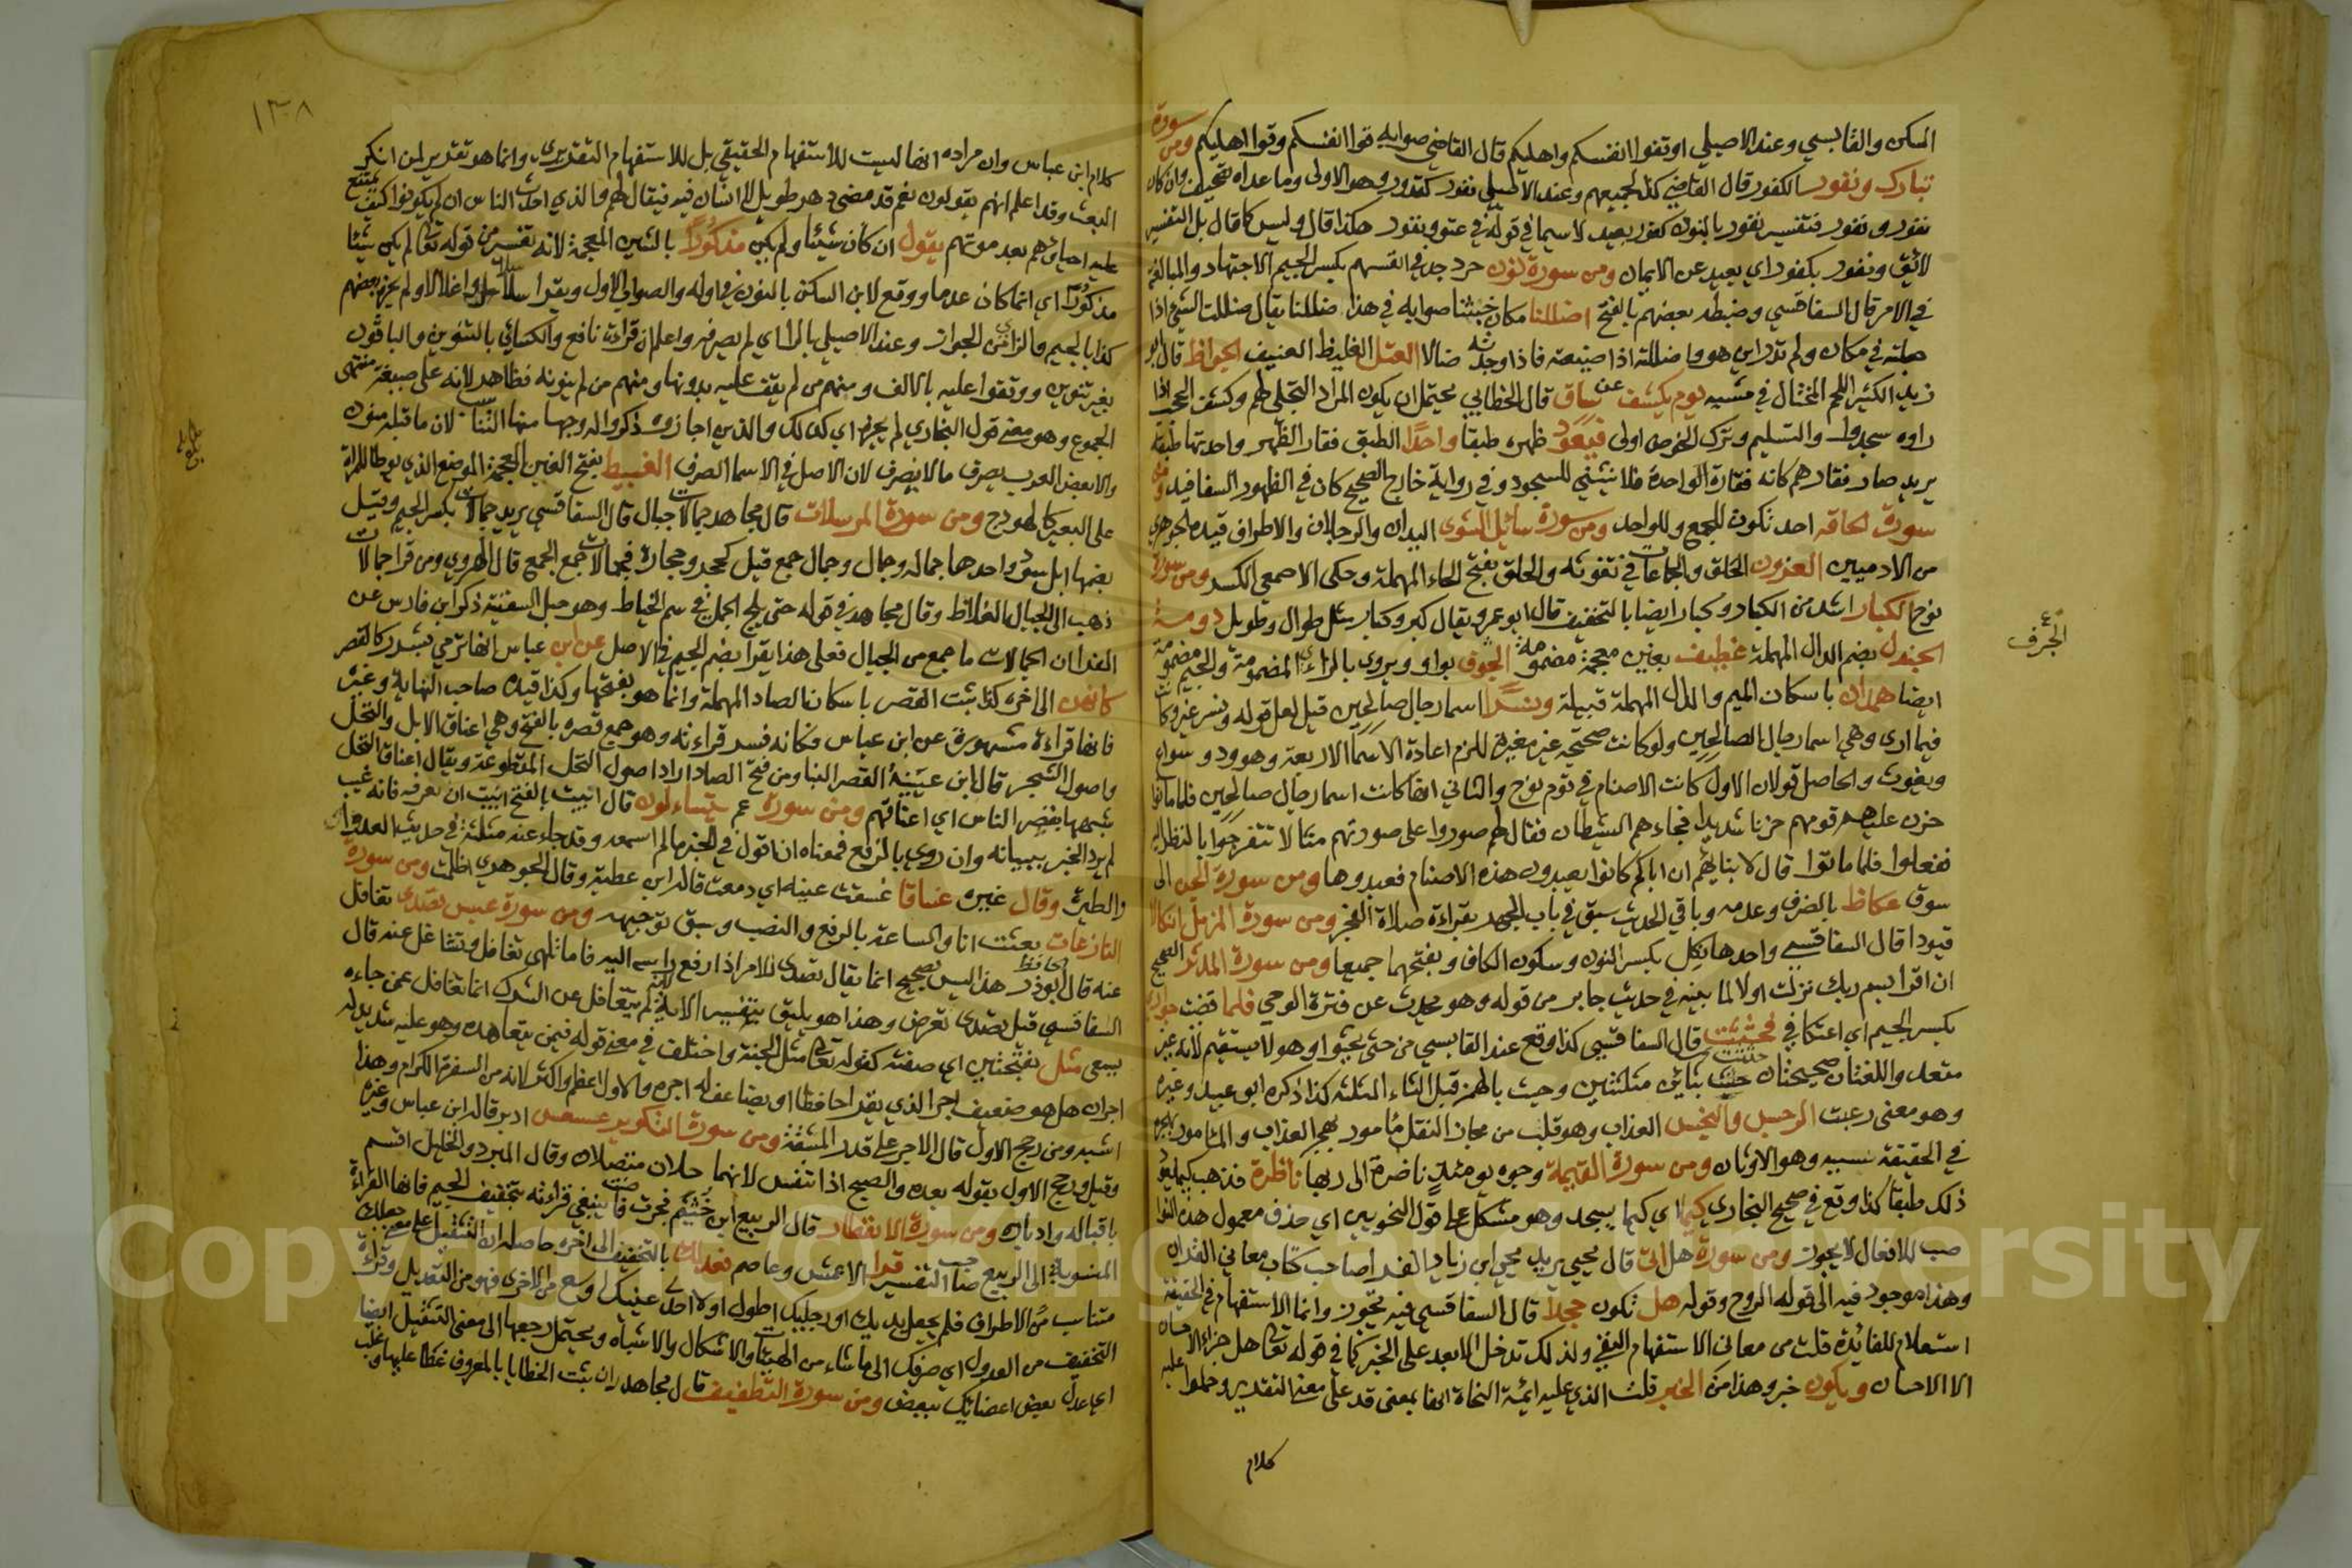 السكن والقابسي وعند الاصيلي او تقوا انفسكم واهليكم قال القاضي صوابه قوا انفسكم وقوا اهليكم ومن سورة
تبارك ونفور الكفور قال القاضي كذا لجميعهم وعند الاصيلي نفور كقدور وهو الاولى وما عداه تصحيف وان كان
نفور وتفور فتفسير نفور بالنون كفور بعيد لا سيما في قوله في عتو ونفور هكذا قال وليس كما قال بل التفسير
لائق ونفور بكفور اي بعيد عن الايمان ومن سورة نون حرد جد في انفسهم بكسر الجيم الاجتهاد والمبالغة
في الامر قال السفاقسي وضبطه بعضهم بالفتح اضللنا مكان جنتنا صوابه في هذا ضللنا يقال ضللت الشي اذا
جعلته في مكان ولم تدر اين هو واضللته اذا ضيعته فاذا وجدته ضالا العتل الغليظ العنيف الجواظ قال ابو
زيد الكثير اللحم المختال في مشيه يوم يكشف عن ساق قال الخطابي يحتمل ان يكون المراد التجلي لهم وكشف الحجب اذا
راوه سجدوا والتسليم وترك الخوض اولى فيعود ظهره طبقا واحدا الطبق فقار الظهر واحدتها طبقة
يريد صار فقارهم كانه فقارة الواحدة فلا ينثني للسجود وفي رواية خارج الصحيح كان في الظهور السفافيد ومن
سورة الحاقة احد تكون للجمع وللواحد ومن سورة سائل الشوى اليدان والرجلان والاطراف قيده الجوهري
من الادميين العزون الحلق والجماعات في تفرقه والحلق بفتح الحاء المهملة وحكى الاصمعي الكسر ومن سورة
نوح الكبار اشد من الكبار وكبار ايضا بالتخفيف قال ابو عمرو يقال كبر وكبار مثل طوال وطويل دومة
الجندل بضم الدال المهملة غطيف بغين معجمة مضمومة الجوف بواو ويروى بالراء المضمومة والجيم مضمومة
الجرف
ايضا همدان باسكان الميم والدال المهملة قبيلة ونسرا اسما رجال صالحين قيل لعل قوله ونسر غيره كان
فيما ارى وهي اسما رجال الصالحين ولو كانت صحيحة غير مغيرة للزم اعادة الاسما الاربعة وهو ود وسواع
ويغوث والحاصل قولان الاول كانت الاصنام في قوم نوح والثاني انها كانت اسما رجال صالحين فلما ماتوا
حزن عليهم قومهم حزنا شديدا فجاءهم الشيطان فقال لهم صوروا على صورتهم مثالا تتفرجوا بالنظر اليه
ففعلوا فلما ماتوا قال لابنائهم ان اباكم كانوا يعبدون هذه الاصنام فعبدوها ومن سورة الجن الى
سوق عكاظ بالصرف وعدمه وباقي الحديث سبق في باب الجهر بقراءة صلاة الفجر ومن سورة المزمل انكالا
قيودا قال السفاقسي واحدها نكل بكسر النون وسكون الكاف وبفتحهما جميعا ومن سورة المدثر الصحيح
ان اقرا بسم ربك نزلت اولا لما بينه في حديث جابر من قوله وهو يحدث عن فترة الوحي فلما قضيت جواري
بكسر الجيم اي اعتكافي فجثيت قال السفاقسي كذا وقع عند القابسي من حثى يحثوا وهو لا يستقيم لانه غير
متعد واللغتان صحيحتان جثثت بثائين مثلثتين وجئث بالهمز قبل الثاء المثلثة كذا ذكره ابو عبيد وغيره
وهو معنى رعبت الرجس والنجس العذاب وهو قلب من مجاز النقل مامور بهجر العذاب والمامور بهجره
في الحقيقة سببه وهو الاوثان ومن سورة القيمة وجوه يومئذ ناضرة الى ربها ناظرة فذهب كيما يعود
ذلك طبقا كذا وقع في صحيح البخاري كيما اي كيما يسجد وهو مشكل على قول النحويين اي حذف معمول هذه النوا
صب للافعال لا يجوز ومن سورة هل اتى قال يحيى يريد يحيى ابن زياد الفرا صاحب كتاب معاني القران
وهذا موجود فيه الى قوله الروح وقوله هل تكون جحدا قال السفاقسي فيه تجوز وانما الاستفهام في الحقيقة
استعلام للفائدة قلت من معاني الاستفهام النفي ولذلك تدخل الا بعد على الخبر كما في قوله تعالى هل جزاء الاحسان
الا الاحسان ويكون خبر وهذا من الخبر قلت الذي عليه ائمة النحاة انها بمعنى قد على معنى التقدير وحملوا عليه
كلام
١٣٠٨
كلام ابن عباس وان مراده انها ليست للاستفهام الحقيقي بل للاستفهام التقديري وانما هو تقدير لمن انكر
البعث وقد اعلم انهم يقولون نعم قد مضى دهر طويل لا انسان فيه فيقال لهم فالذي احدث الناس ان لم يكونوا كيف يمتنع
عليه احياؤهم بعد موتهم يقول ان كان شيئا ولم يكن مذكورا بالشين المعجمة لانه تفسير من قوله تعالى لم يكن شيئا
مذكورا اي انما كان عدما ووقع لابن السكن بالنون في اوله والصواب الاول ويقرا سلاسلا واغلالا ولم يجز بعضهم
كذا بالجيم والزاي من الجواز وعند الاصيلي بالراء اي لم يصرفه واعلم ان قراءة نافع والكسائي بالتنوين والباقون
بغير تنوين ووقفوا عليه بالالف ومنهم من لم يقف عليه بدونها ومنهم من لم ينونه فظاهر لانه على صيغة منتهى
الجموع وهو معنى قول البخاري لم يجزها اي كذلك والذين اجازوه ذكروا له وجها منها التناسب لان ما قبله منون
والا بعض العرب يصرف ما لا ينصرف لان الاصل في الاسما الصرف الغبيط بفتح الغين المعجمة الموضع الذي يوطا للمراة
على البعير كالهودج ومن سورة المرسلات قال مجاهد جمالات حبال قال السفاقسي يريد جمالات بكسر الجيم وقيل
بضمها ابل سود واحدها جمالة وجمال وجمال جمع قيل كحجر وحجارة فجمالات جمع الجمع قال الهروي ومن قرا جمالات
ذهب الى الحبال الغلاظ وقال مجاهد في قوله حتى يلج الجمل في سم الخياط وهو حبل السفينة ذكر ابن فارس عن
الفرا ان الجمالات ما جمع من الحبال فعلى هذا يقرا بضم الجيم في الاصل عن ابن عباس انها ترمي بشرر كالقصر
كانعرف الى اخره كذا ثبت القصر باسكان الصاد المهملة وانما هو بفتحها وكذا قيده صاحب النهاية وغيره
فانها قراءة مشهورة عن ابن عباس فكانه فسر قراءته وهو جمع قصرة بالفتح وهي اعناق الابل والنخل
واصول الشجر قال ابن عيينة القصر البنا ومن فتح الصاد اراد اصول النخل المقطوعة ويقال اعناق النخل
شبهها بقصر الناس اي اعناقهم ومن سورة عم يتساءلون قال ابيت بالفتح ابيت ان تعرفه فانه غيب
لم يرد الخبر ببيانه وان روي بالرفع فمعناه ان اقول في الخبر ما لم اسمعه وقد جاء عنه مثله في حديث العدوى
والطيرة وقال غيره غساقا غسقت عينه اي دمعت قاله ابن عطية وقال الجوهري اظلمت ومن سورة
النازعات بعثت انا والساعة بالرفع والنصب وسبق توجيهه ومن سورة عبس تصدى تغافل
عنه قال الحافظ ابو ذر هذا ليس بصحيح انما يقال تصدى للامر اذا رفع راسه اليه فاما تلهى تغافل وتشاغل عنه قال
السفاقسي قيل تصدى تعرض وهذا هو يليق بتفسير الاية لانه لم يتغافل عن المشرك انما تغافل عمن جاءه
يسعى مثل بفتحتين اي صفته كقوله تعالى مثل الجنة واختلف في معنى قوله فيمن يتعاهده وهو عليه شديد له
اجران هل هو ضعيف اجر الذي يقرا حافظا او يضاعف له اجره والاول اعظم واكثر لانه من السفرة الكرام وهذا
اشبه ومن رجح الاول قال الاجر على قدر المشقة ومن سورة التكوير عسعس ادبر قاله ابن عباس وغيره
وقيل ورجح الاول بقوله بعده والصبح اذا تنفس لانهما حلان متصلان وقال المبرد والخليل اقسم
باقباله وادباره ومن سورة الانفطار قال الربيع ابن خثيم فجرت فاضت ينبغي قراءته بتخفيف الجيم فانها القراءة
المنسوبة الى الربيع صاحب التفسير قرا الاعمش وعاصم فعدلك بالتخفيف الى اخره حاصله ان التثقيل على معنى جعلك
متناسب الاطراف فلم يجعل يديك او رجليك اطول ولا احدى عينيك اوسع من الاخرى فهو من التعديل وقراءة
التخفيف من العدول اي صرفك الى ما شاء من الهيئات والاشكال والاشباه ويحتمل رجعها الى معنى التثقيل ايضا
اي عدل بعض اعضائك ببعض ومن سورة التطفيف قال مجاهد ران ثبت الخطايا بالمعروف غطا عليها وغلب
Copyright © King Saud University